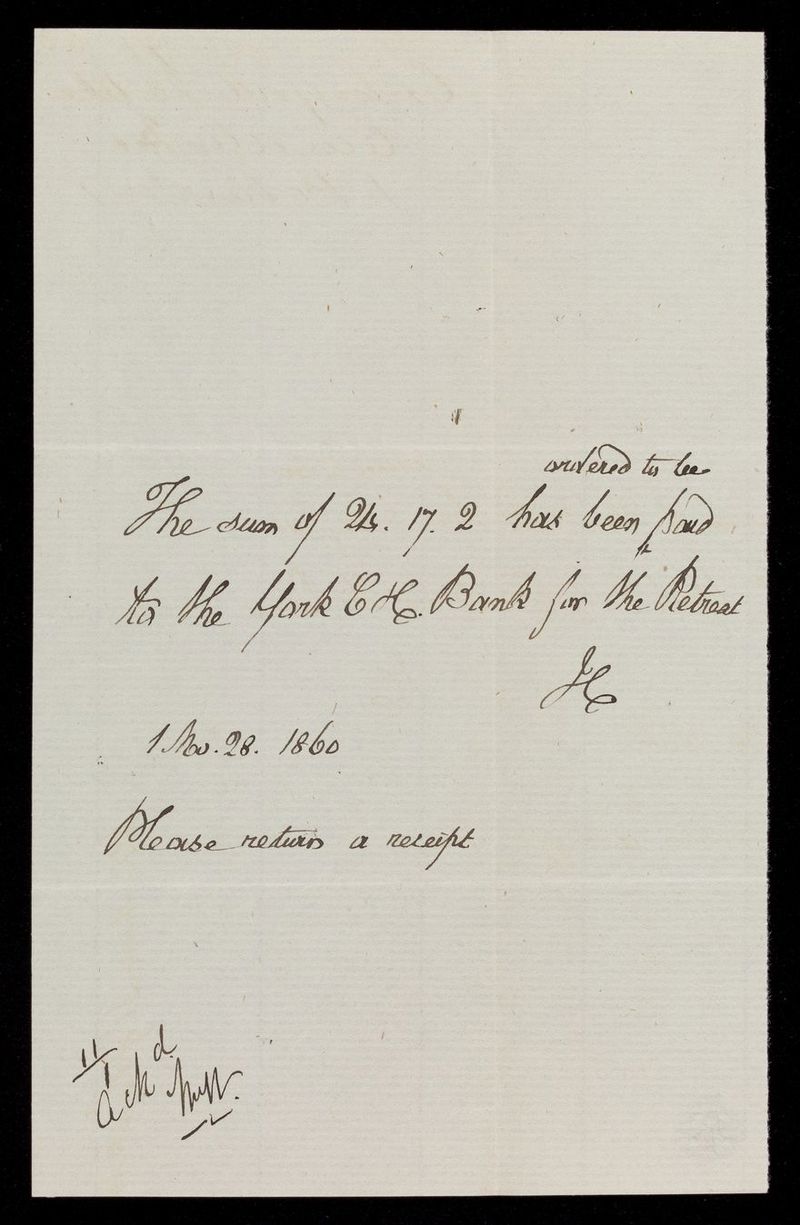 ordered to be
The sum of 24. 17. 2 has been paid
to the York C H. Bank for the Retreat
JH
1 Mo. 28. 1860
Please return a receipt
11
Ackd